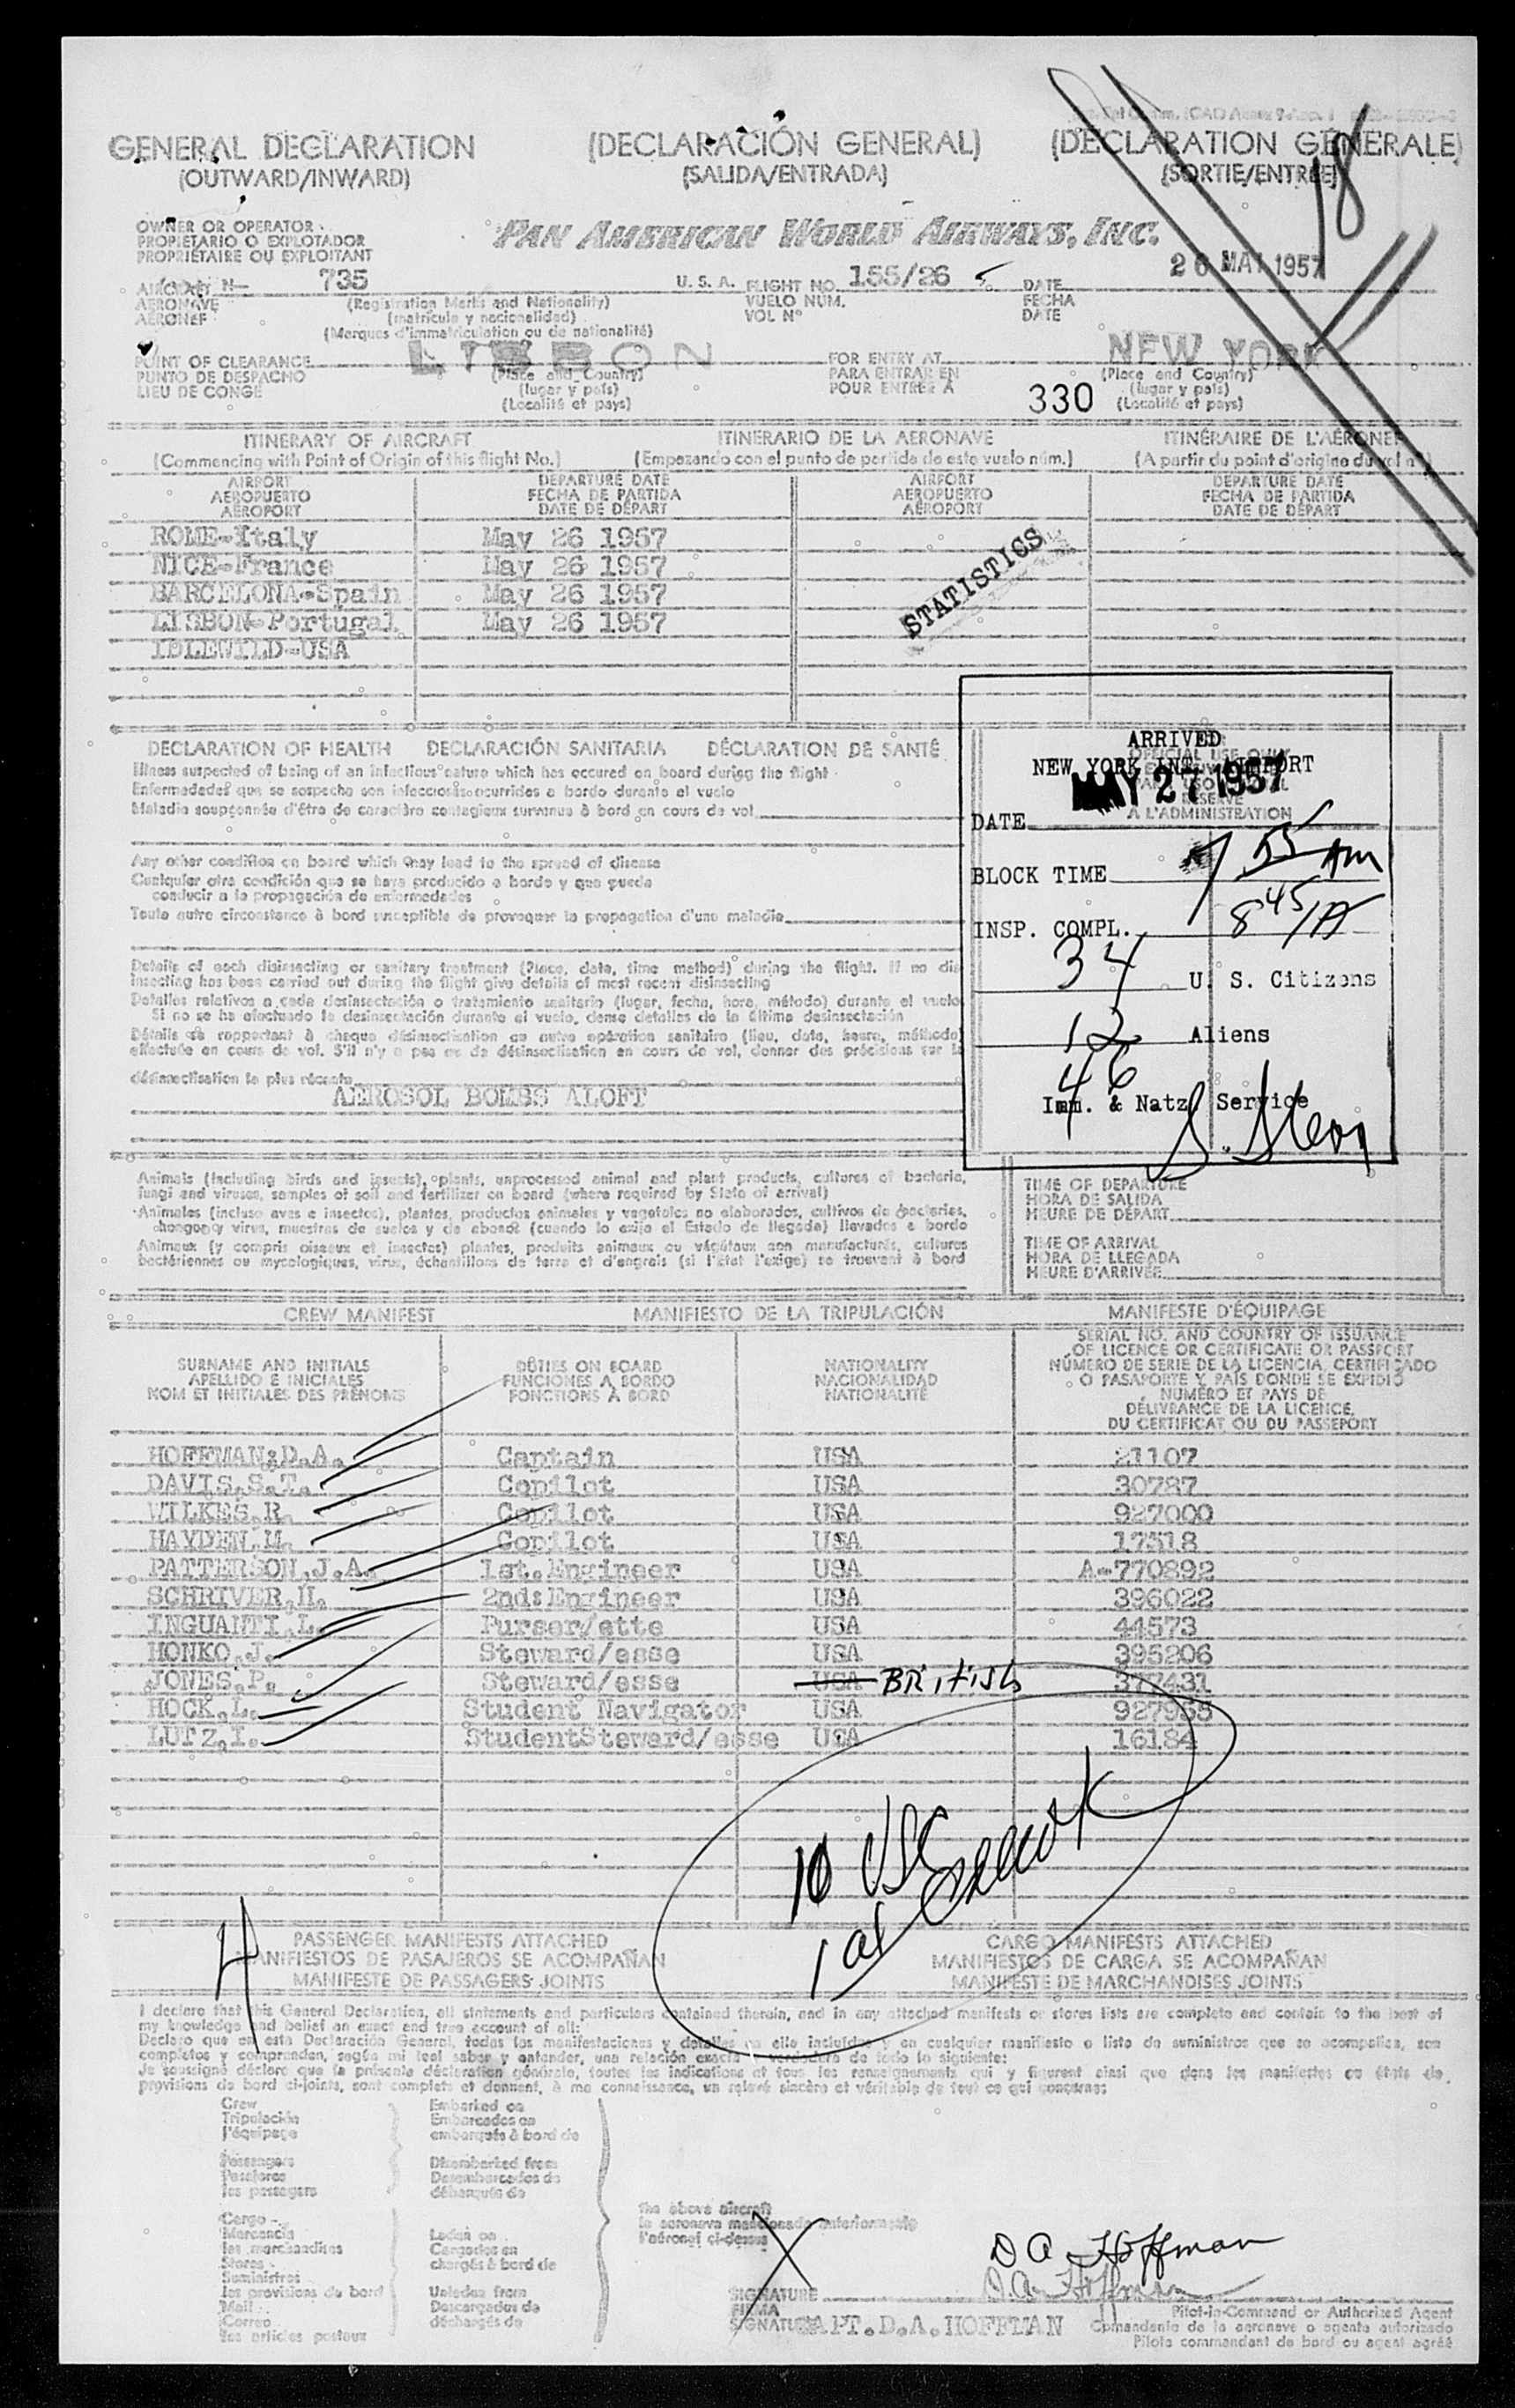 GENERAL DECLARATION (DECLARACIÓN GENERAL) (DÉCLARATION GÉNÉRALE)
(OUTWARD/INWARD) (SALIDA/ENTRADA) (SORTIE/ENTRÉE)
18
OWNER OR OPERATOR
PROPIETARIO O EXPLOTADOR
PROPRIÉTAIRE OU EXPLOITANT
PAN AMERICAN WORLD AIRWAYS, INC.
26 MAY 1957
AIRCRAFT N- 735 U. S. A. FLIGHT NO. 155/26 DATE
AERONAVE (Registration Marks and Nationality) VUELO NÚM. FECHA
AÉRONEF (matrícula y nacionalidad) VOL Nº DATE
(Marques d'immatriculation ou de nationalité)
POINT OF CLEARANCE LISBON FOR ENTRY AT NEW YORK
PUNTO DE DESPACHO (Place and Country) PARA ENTRAR EN (Place and Country)
LIEU DE CONGÉ (lugar y país) POUR ENTRÉE À 330 (lugar y país)
(Localité et pays) (Localité et pays)
ITINERARY OF AIRCRAFT ITINERARIO DE LA AERONAVE ITINÉRAIRE DE L'AÉRONEF
(Commencing with Point of Origin of this flight No.) (Empezando con el punto de partida de este vuelo núm.) (A partir du point d'origine du vol nº)
AIRPORT DEPARTURE DATE AIRPORT DEPARTURE DATE
AEROPUERTO FECHA DE PARTIDA AEROPUERTO FECHA DE PARTIDA
AÉROPORT DATE DE DÉPART AÉROPORT DATE DE DÉPART
ROME-Italy May 26 1957
NICE-France May 26 1957
BARCELONA-Spain May 26 1957
LISBON-Portugal May 26 1957
IDLEWILD-USA
STATISTICS
DECLARATION OF HEALTH DECLARACIÓN SANITARIA DÉCLARATION DE SANTÉ
Illness suspected of being of an infectious nature which has occured on board during the flight
Enfermedades que se sospecha son infecciosas ocurridas a bordo durante el vuelo
Maladie soupçonnée d'être de caractère contagieux survenue à bord en cours de vol
Any other condition on board which may lead to the spread of disease
Cualquier otra condición que se haya producido a bordo y que pueda
conducir a la propagación de enfermedades
Toute autre circonstance à bord susceptible de provoquer la propagation d'une maladie
Details of each disinsecting or sanitary treatment (Place, date, time method) during the flight. If no dis-
insecting has been carried out during the flight give details of most recent disinsecting
Detalles relativos a cada desinsectación o tratamiento sanitario (lugar, fecha, hora, método) durante el vuelo
Si no se ha efectuado la desinsectación durante el vuelo, dense detalles de la última desinsectación
Détails se rapportant à chaque désinsectisation ou autre opération sanitaire (lieu, date, heure, méthode)
effectuée en cours de vol. S'il n'y a pas eu de désinsectisation en cours de vol, donner des précisions sur la
désinsectisation la plus récente
AEROSOL BOMBS ALOFT
ARRIVED
NEW YORK INT. AIRPORT
OFFICIAL USE ONLY
MAY 27 1957
RESERVÉ
À L'ADMINISTRATION
DATE
BLOCK TIME 7 55 AM
INSP. COMPL. 8 45/A
34 U. S. Citizens
12 Aliens
46
Imm. & Natz. Service
S. Stern
Animals (including birds and insects), plants, unprocessed animal and plant products, cultures of bacteria,
fungi and viruses, samples of soil and fertilizer on board (where required by State of arrival)
Animales (incluso aves e insectos), plantas, productos animales y vegetales no elaborados, cultivos de bacterias,
hongos y virus, muestras de suelos y de abonos (cuando lo exija el Estado de llegada) llevados a bordo
Animaux (y compris oiseaux et insectes) plantes, produits animaux ou végétaux non manufacturés, cultures
bactériennes ou mycologiques, virus, échantillons de terre et d'engrais (si l'État l'exige) se trouvant à bord
TIME OF DEPARTURE
HORA DE SALIDA
HEURE DE DÉPART
TIME OF ARRIVAL
HORA DE LLEGADA
HEURE D'ARRIVÉE
CREW MANIFEST MANIFIESTO DE LA TRIPULACIÓN MANIFESTE D'ÉQUIPAGE
SURNAME AND INITIALS DUTIES ON BOARD NATIONALITY
APELLIDO E INICIALES FUNCIONES A BORDO NACIONALIDAD
NOM ET INITIALES DES PRÉNOMS FONCTIONS À BORD NATIONALITÉ
SERIAL NO. AND COUNTRY OF ISSUANCE
OF LICENCE OR CERTIFICATE OR PASSPORT
NÚMERO DE SERIE DE LA LICENCIA, CERTIFICADO
O PASAPORTE Y PAÍS DONDE SE EXPIDIÓ
NUMÉRO ET PAYS DE
DÉLIVRANCE DE LA LICENCE,
DU CERTIFICAT OU DU PASSEPORT
HOFFMAN,D.A. Captain USA 21107
DAVIS,S.T. Copilot USA 30787
WILKES,R. Copilot USA 927000
HAYDEN,M. Copilot USA 17518
PATTERSON,J.A. 1st.Engineer USA A-770892
SCHRIVER,H. 2nd:Engineer USA 396022
INGUANTI,L. Purser/ette USA 44573
HONKO,J. Steward/esse USA 395206
JONES,P. Steward/esse USA BRITISH 377431
HOCK,L. Student Navigator USA 927955
LUTZ,I. StudentSteward/esse USA 16184
10 USC
1 al
4
PASSENGER MANIFESTS ATTACHED CARGO MANIFESTS ATTACHED
MANIFIESTOS DE PASAJEROS SE ACOMPAÑAN MANIFIESTOS DE CARGA SE ACOMPAÑAN
MANIFESTE DE PASSAGERS JOINTS MANIFESTE DE MARCHANDISES JOINTS
I declare that this General Declaration, all statements and particulars contained therein, and in any attached manifests or stores lists are complete and contain to the best of
my knowledge and belief an exact and true account of all:
Declaro que en esta Declaración General, todas las manifestaciones y detalles en ella incluidos y en cualquier manifiesto o lista de suministros que se acompañan, son
completos y comprenden, según mi leal saber y entender, una relación exacta y verdadera de todo lo siguiente:
Je soussigné déclare que la présente déclaration générale, toutes les indications et tous les renseignements qui y figurent ainsi que dans les manifestes ou états de
provisions de bord ci-joints, sont complets et donnent, à ma connaissance, un relevé sincère et véritable de tout ce qui concerne:
Crew Embarked on
Tripulación Embarcados en
l'équipage embarqués à bord de
Passengers Disembarked from
Pasajeros Desembarcados de
les passagers débarqués de
Cargo
Mercancía Laden on
les marchandises Cargados en
Stores chargés à bord de
Suministros
les provisions de bord Unladen from
Mail Descargados de
Correo déchargés de
les articles postaux
the above aircraft
la aeronave mencionada anteriormente
l'aéronef ci-dessus
X
D A Hoffman
D. A. Hoffman
SIGNATURE
FIRMA
SIGNATURE CAPT.D.A.HOFFMAN
Pilot-in-Command or Authorized Agent
Comandante de la aeronave o agente autorizado
Pilote commandant de bord ou agent agréé